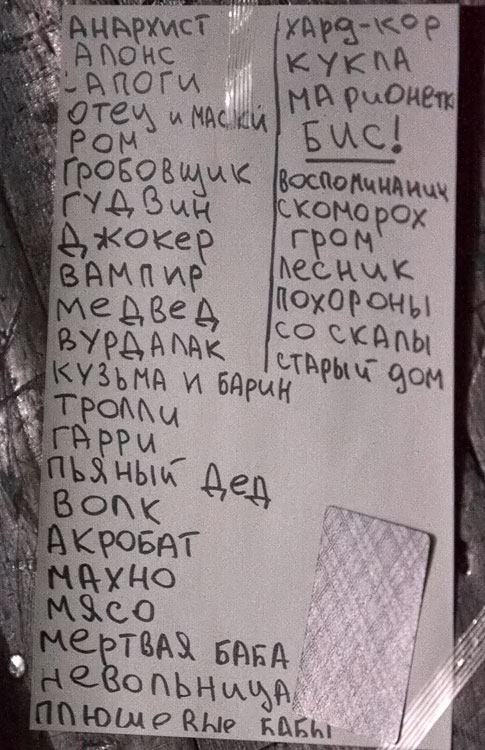 АНАРХИСТ
АПОНС
САПОГИ
ОТЕЦ И МАСКИ
РОМ
ГРОБОВЩИК
ГУДВИН
ДЖОКЕР
ВАМПИР
МЕДВЕД
ВУРДАЛАК
КУЗЬМА И БАРИН
ТРОЛЛИ
ГАРРИ
ПЬЯНЫЙ ДЕД
ВОЛК
АКРОБАТ
МАХНО
МЯСО
МЕРТВАЯ БАБА
НЕВОЛЬНИЦА
ПЛЮШЕВЫЕ БАБЫ
ХАРД-КОР
КУКЛА
МАРИОНЕТК
БИС!
ВОСПОМИНАНИЯ
СКОМОРОХ
ГРОМ
ЛЕСНИК
ПОХОРОНЫ
СО СКАЛЫ
СТАРЫЙ ДОМ